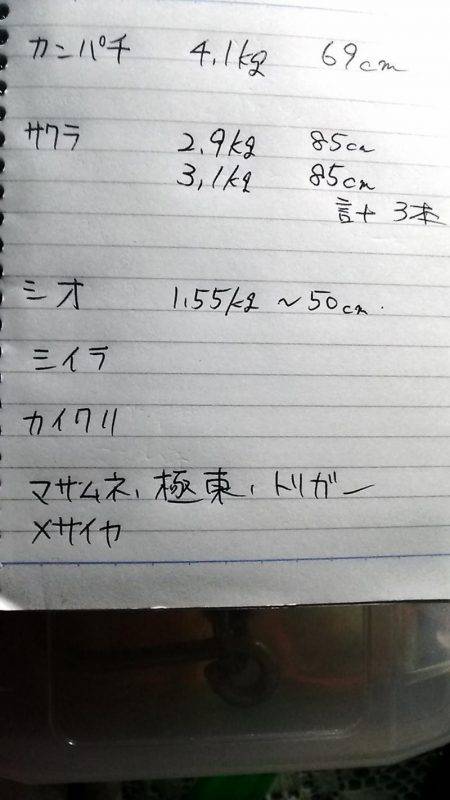 カンパチ 4.1kg 69cm
サワラ 2.9kg 85cm
3.1kg 85cm
計 3本
ミオ 1.55kg ~50cm.
ミイラ
カイワリ
マサムネ、極東、トリガー
メサイヤ